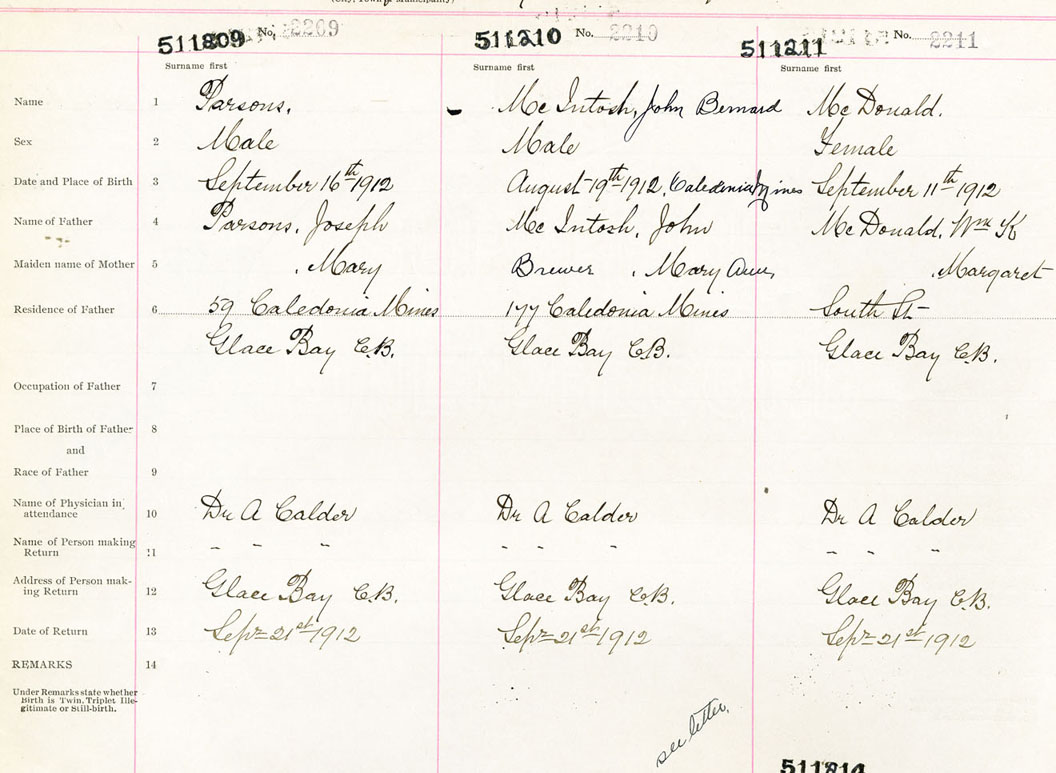 511809 No. 2209 511210 No. 2210 511211 No. 2211
Surname first Surname first Surname first
Name 1 Parsons. Mc Intosh, John Bernard Mc Donald.
Sex 2 Male Male Female
Date and Place of Birth 3 September 16th 1912 August 19th 1912, Caledonia Mines September 11th 1912
Name of Father 4 Parsons, Joseph Mc Intosh, John Mc Donald, Wm K
Maiden name of Mother 5 , Mary Brewer , Mary Ann , Margaret
Residence of Father 6 59 Caledonia Mines 177 Caledonia Mines South St
Glace Bay C.B. Glace Bay C.B. Glace Bay C.B.
Occupation of Father 7
Place of Birth of Father 8
and
Race of Father 9
Name of Physician in
attendance 10 Dr A Calder Dr A Calder Dr A Calder
Name of Person making
Return 11 " " " " " " " " "
Address of Person mak-
ing Return 12 Glace Bay C.B. Glace Bay C.B. Glace Bay C.B.
Date of Return 13 Sept 21st 1912 Sept 21st 1912 Sept 21st 1912
REMARKS 14
Under Remarks state whether
Birth is Twin, Triplet Ille-
gitimate or Still-birth.
see letter.